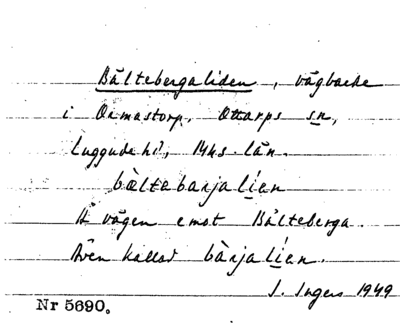 Bältebergaliden, vägbacke
i Ormastorp, Ottarps sn,
Luggude hd, Mhs. län.
bæltebarjalien
å vägen emot Bälteberga.
Även kallad bàrjalíen.
I. Ingers 1949
Nr 5690.